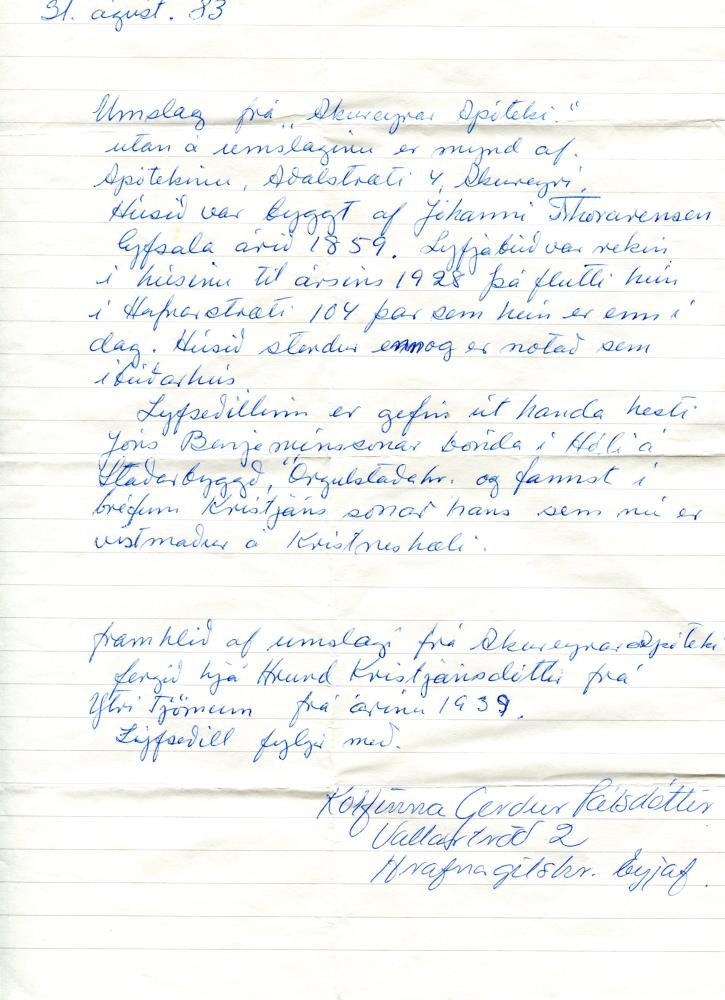 31. ágúst. 83
Umslag frá „Akureyrar Apóteki."
utan á umslaginu er mynd af.
Apótekinu, Aðalstræti 4, Akureyri.
Húsið var byggt af Jóhanni Thorarensen
lyfsala árið 1859. Lyfjabúð var rekin
í húsinu til ársins 1928 þá flutti hún
í Hafnarstræti 104 þar sem hún er enn í
dag. Húsið stendur enn og er notað sem
íbúðarhús
Lyfseðillinn er gefin út handa hesti
Jóns Benjamínssonar bónda í Hóli á
Staðarbyggð, Öngulstaðahr. og fannst í
bréfum Kristjáns sonar hans sem nú er
vistmaður á Kristneshæli.
framhlið af umslagi frá Akureyrar Apóteki
fengið hjá Hrund Kristjánsdóttir frá
Ytri Tjörnum frá árinu 1939.
Lyfseðill fylgir með.
Kolfinna Gerður Pálsdóttir
Vallartröð 2
Hrafnagilshr. Eyjaf.